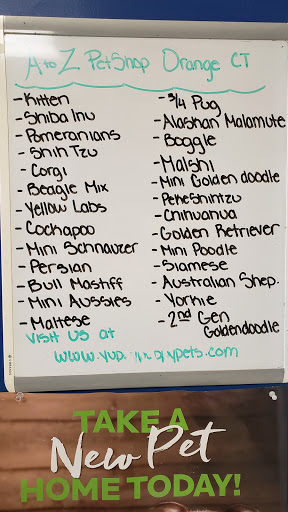 A to Z Pet Shop Orange CT
- Kitten
- Shiba Inu
- Pomeranians
- Shih Tzu
- Corgi
- Beagle Mix
- Yellow Labs
- Cochapoo
- Mini Schnauzer
- Persian
- Bull Mastiff
- Mini Aussies
- Maltese
Visit us at
- 3/4 Pug
- Alaskan Malamute
- Boggle
- Malshi
- Mini Golden doodle
- Pekeshihtzu
- Chihuahua
- Golden Retriever
- Mini Poodle
- Siamese
- Australian Shep.
- Yorkie
- 2nd Gen
Goldendoodle
TAKE A
New Pet
HOME TODAY!